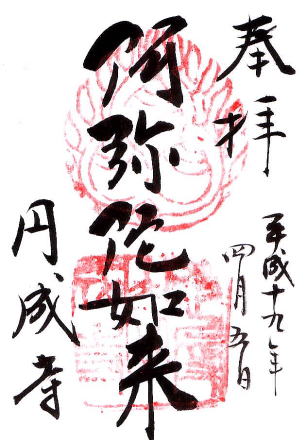 奉拝
平成十九年
四月五日
阿弥陀如来
円成寺